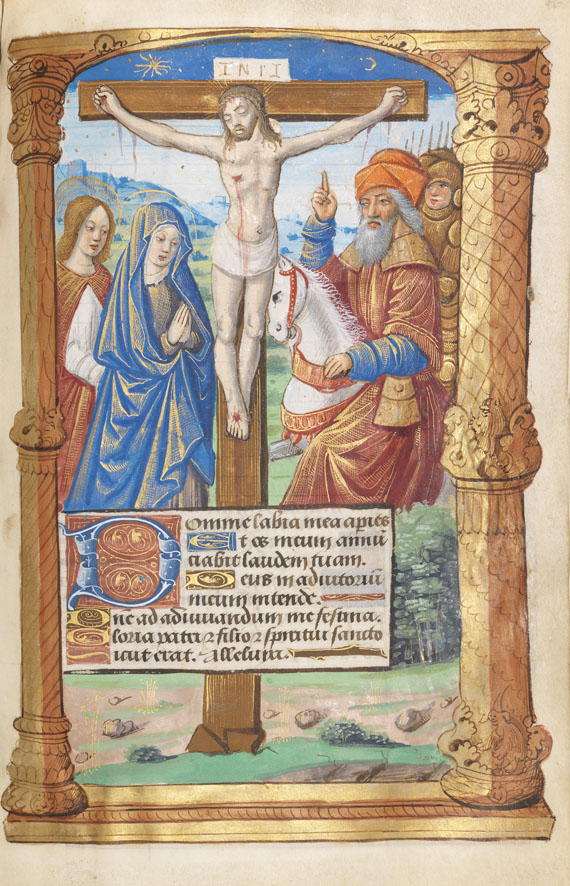 INRI
Domine labia mea aperies
Et os meum annu
ciabit laudem tuam.
Deus in adiutoriu
meum intende.
Dne ad adiuvandum me festina.
Gloria patri ⁊ filio ⁊ spiritui sancto
Sicut erat. Alleluya.